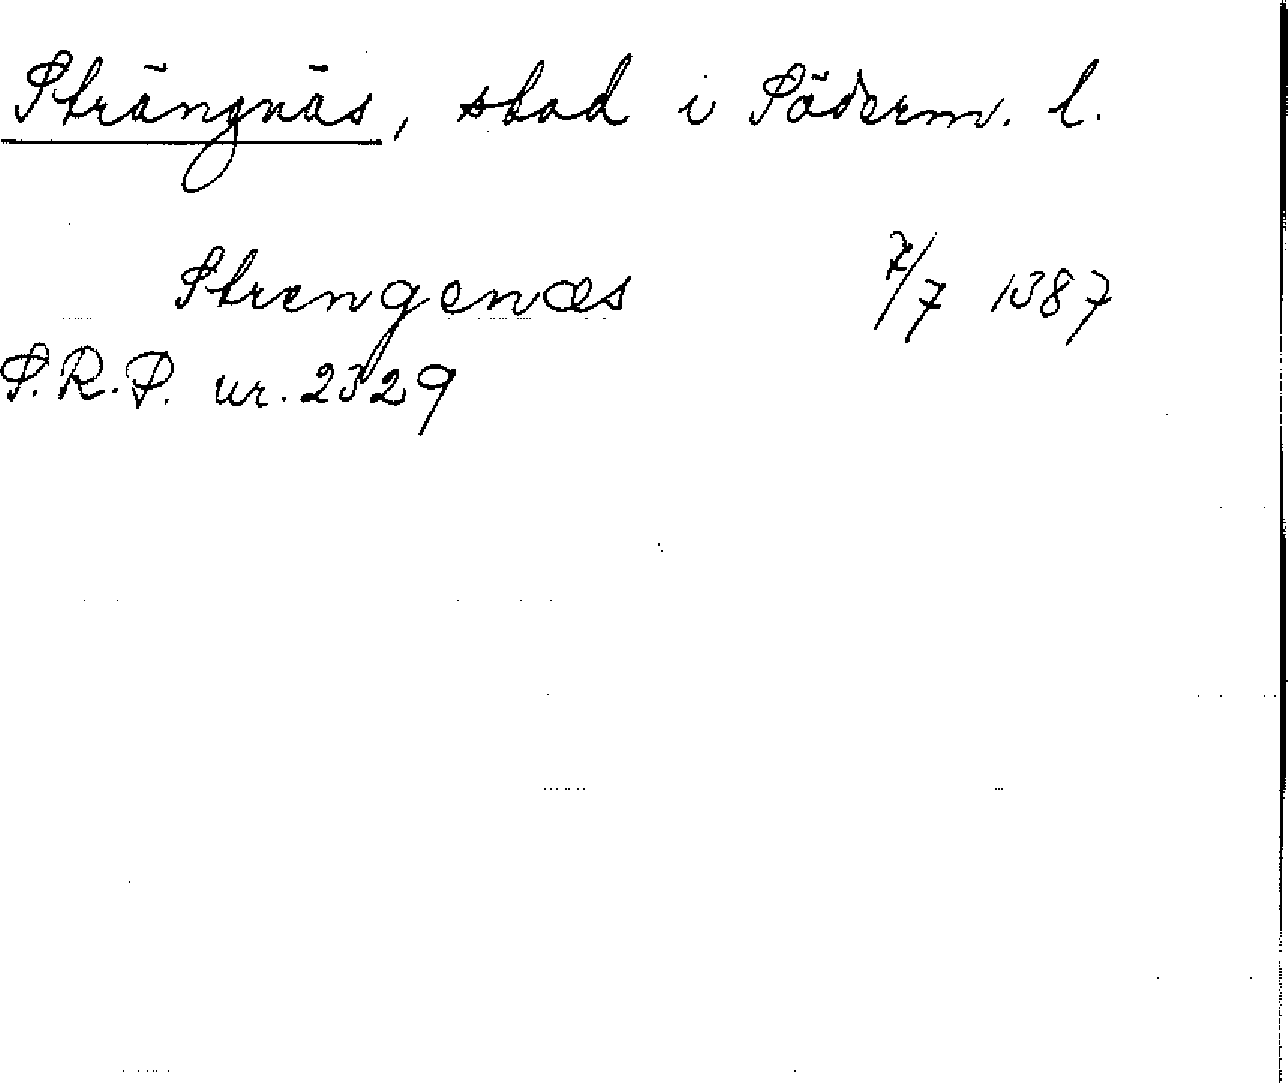 Strängnäs, stad i Söderm. l.
Strengenæs 7/7 1387
S.R.P. nr. 2329